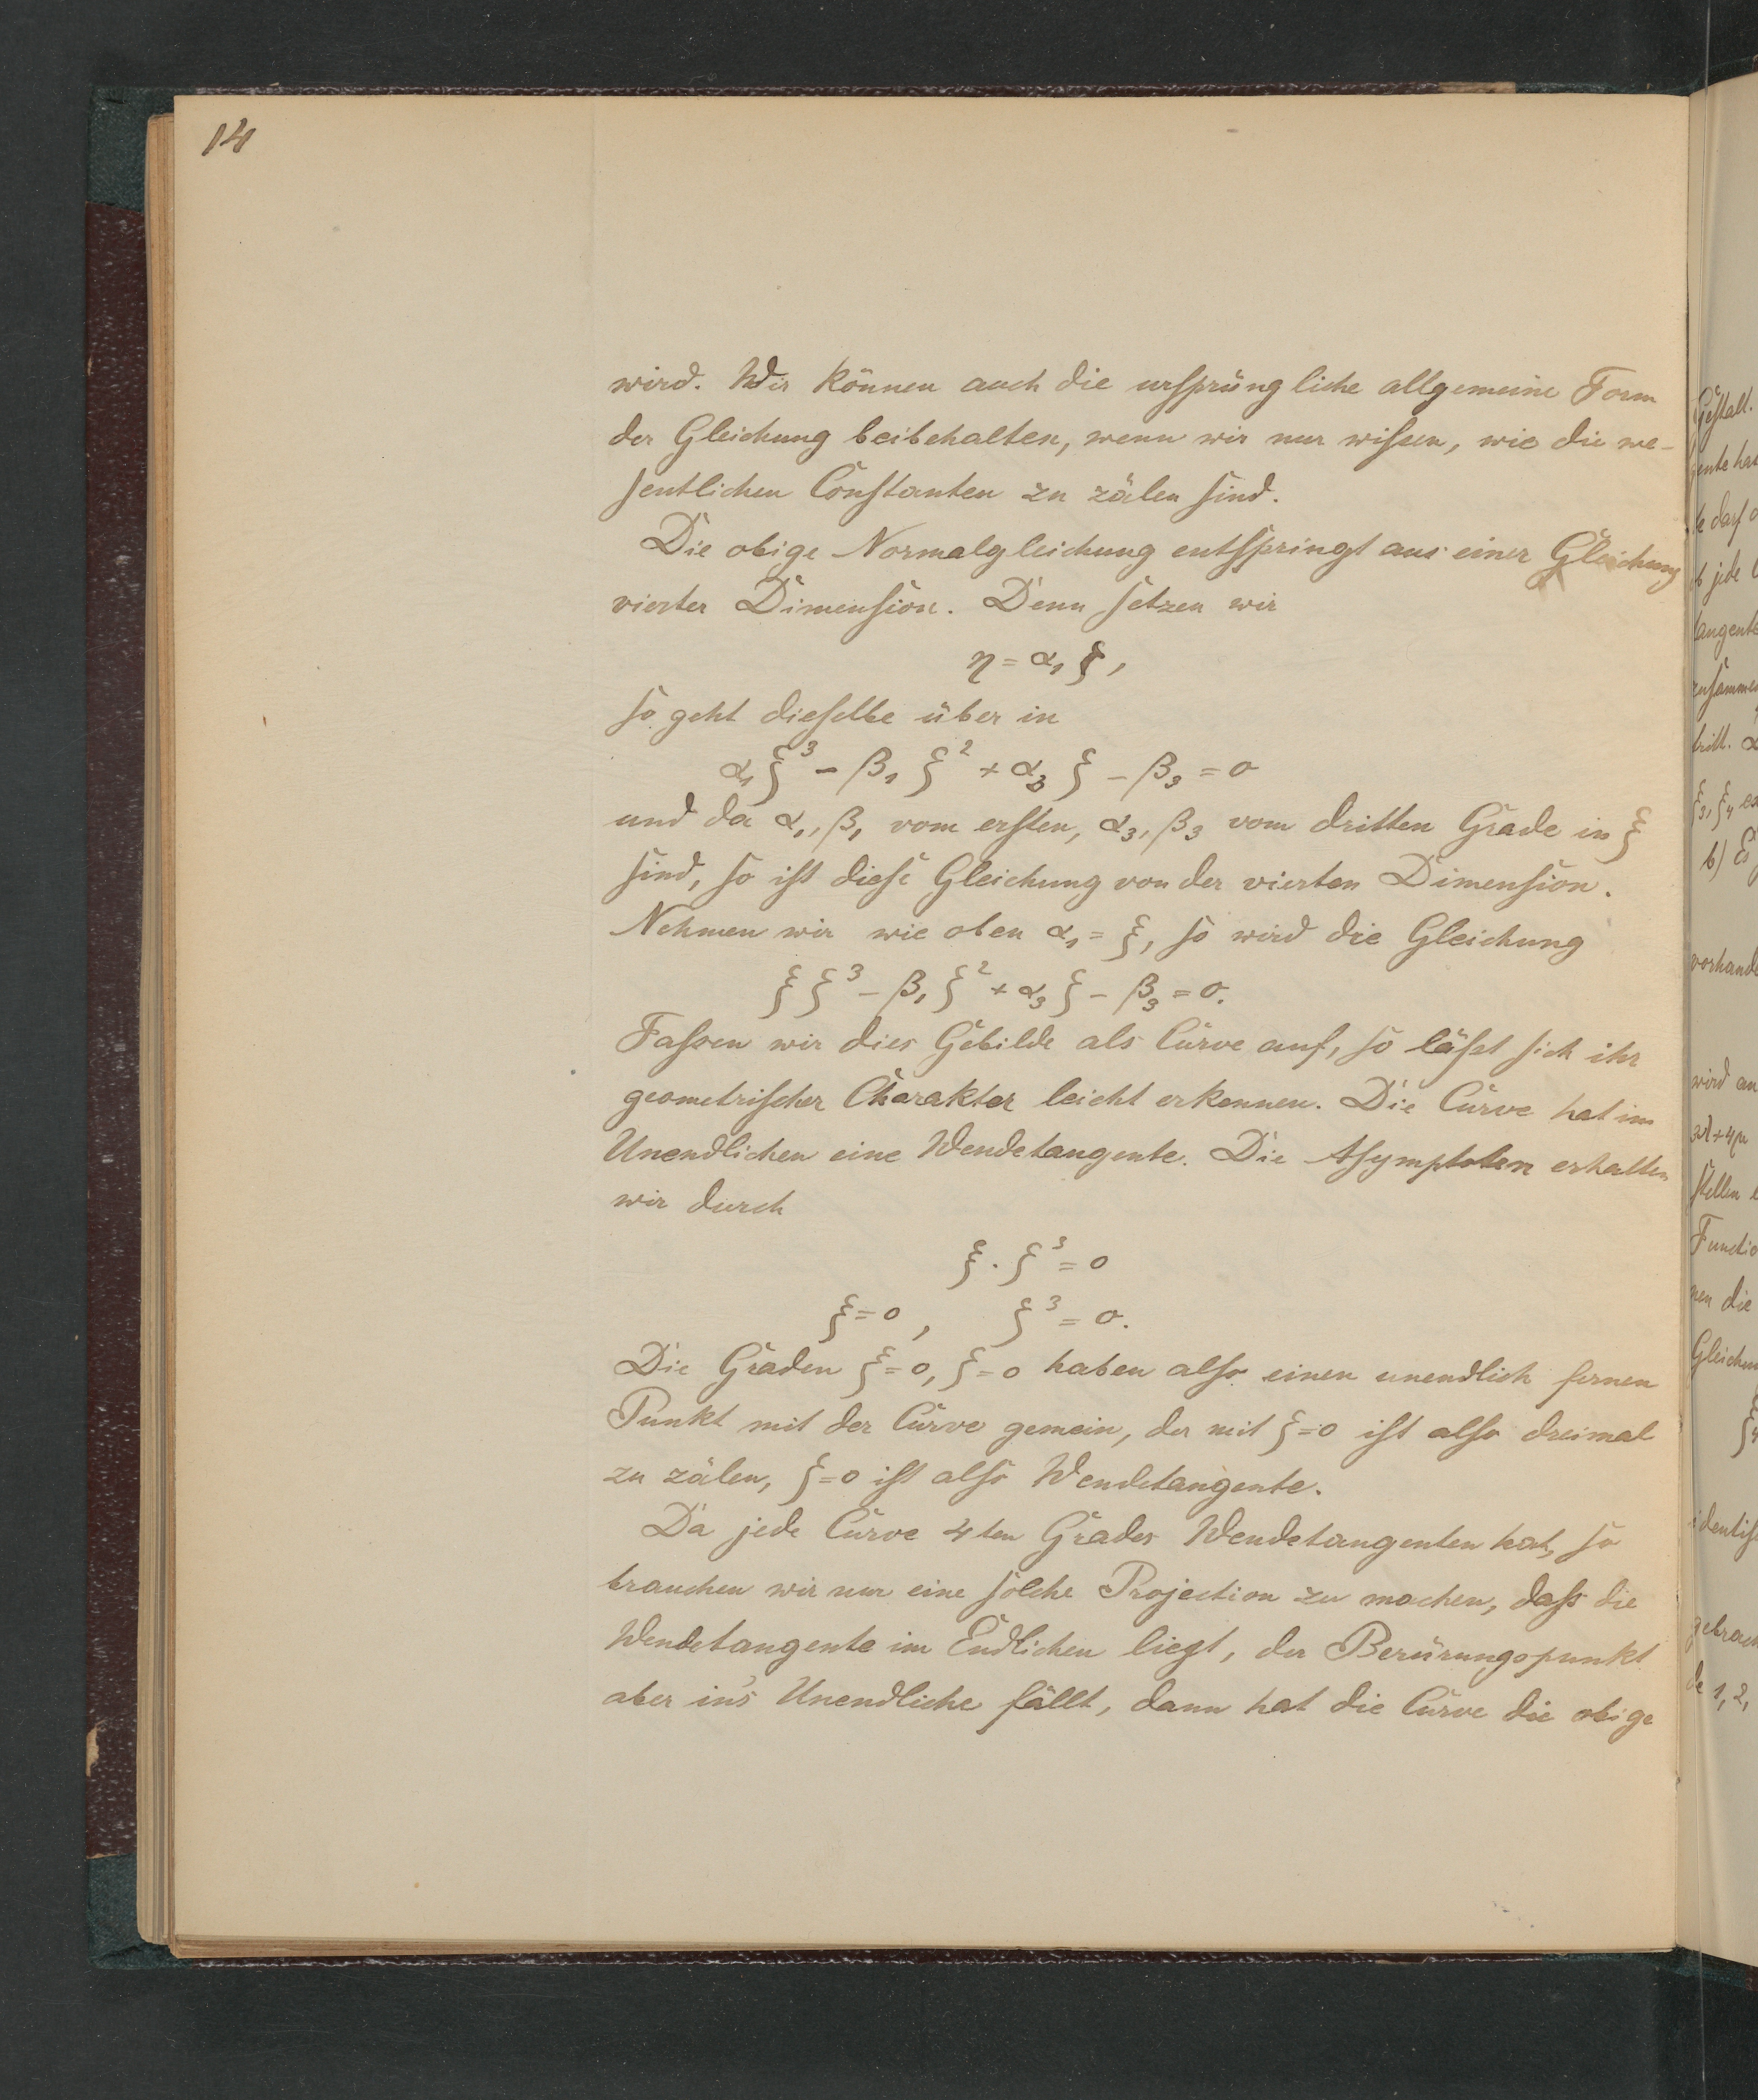 14
wird. Wir können auch die ursprüngliche allgemeine Form
der Gleichung beibehalten, wenn wir nur wissen, wie die we-
sentlichen Constanten zu zälen sind.
Die obige Normalgleichung entspringt aus einer Gleichung
vierter Dimension. Denn setzen wir
η = α₁ ζ,
so geht dieselbe über in
α₁ ζ³ - β₁ ζ² + α₃ ζ - β₃ = 0
und da α₁, β₁ vom ersten, α₃, β₃ vom dritten Grade in ξ
sind, so ist diese Gleichung von der vierten Dimension.
Nehmen wir wie oben α₁ = ξ, so wird die Gleichung
ξ ζ³ - β₁ ζ² + α₃ ζ - β₃ = 0.
Fassen wir dies Gebilde als Curve auf, so läßt sich ihr
geometrischer Charakter leicht erkennen. Die Curve hat im
Unendlichen eine Wendetangente. Die Asymptoten erhalten
wir durch
ξ · ζ³ = 0
ξ = 0, ζ³ = 0.
Die Graden ξ = 0, ζ = 0 haben also einen unendlich fernen
Punkt mit der Curve gemein, der mit ζ = 0 ist also dreimal
zu zälen, ζ = 0 ist also Wendetangente.
Da jede Curve 4ten Grades Wendetangenten hat, so
brauchen wir nur eine solche Projection zu machen, daß die
Wendetangente im Endlichen liegt, der Berürungspunkt
aber in's Unendliche fällt, dann hat die Curve die obige
Gestalt.
darf
jede
ξ₃, ξ₄
b) Es
wird
3λ+4μ
stellen
die
1, 2,